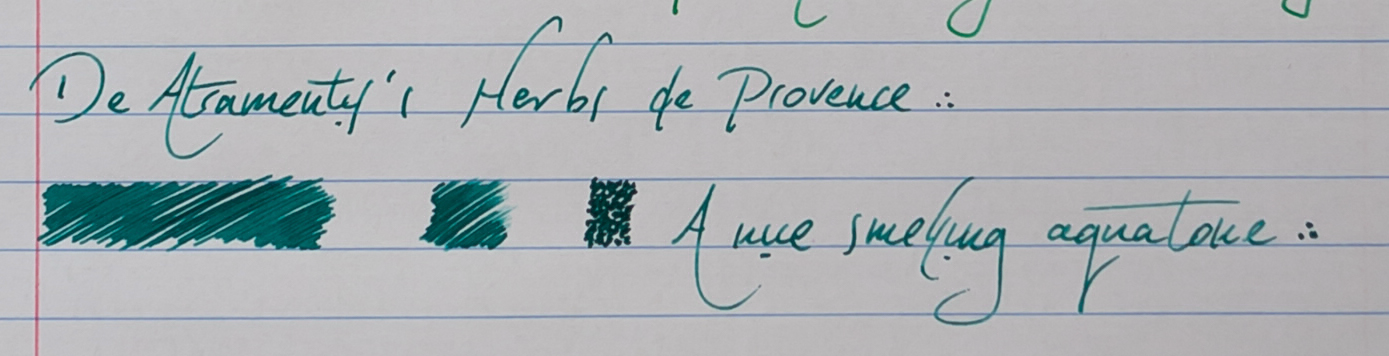 De Atramentis's Herbs de Provence ∴
A nice smelling aquatone ∴